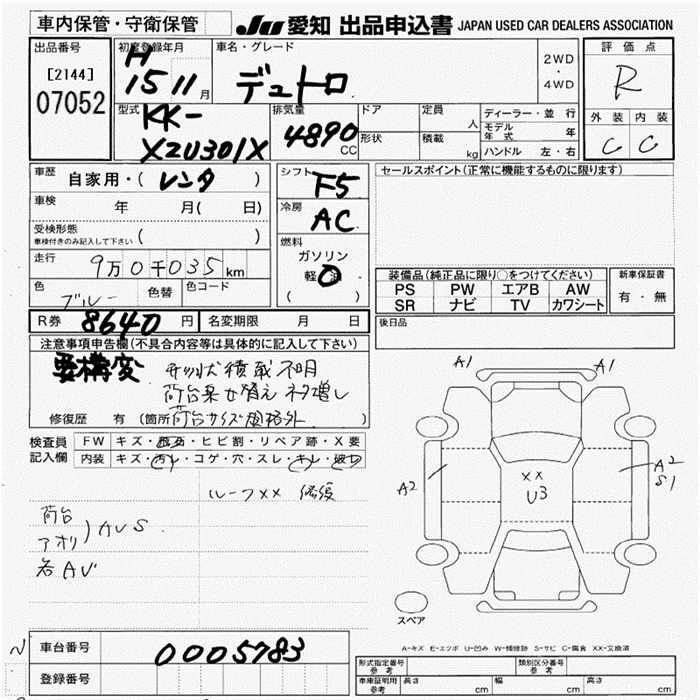 車内保管・守衛保管
JU 愛知 出品申込書 JAPAN USED CAR DEALERS ASSOCIATION
出品番号
[2144]
07052
初度登録年月
H
15 11 月
車名・グレード
デュトロ
2WD
・
4WD
評価点
R
外装 内装
C C
型式
KK-
XZU301X
排気量
4890
CC
ドア
形状
定員
人
積載
kg
ディーラー・並行
モデル年式 年
ハンドル 左・右
車歴
自家用・( レンタ )
車検 年 月( 日)
受検形態
車検付きのみ記入して下さい ( )
走行
9万0千035 km
色
ブルー
色替
色コード
シフト
F5
冷房
AC
燃料
ガソリン
軽油
( )
セールスポイント(正常に機能するものに限ります)
装備品(純正品に限り○をつけてください)
PS PW エアB AW
SR ナビ TV カワシート
新車保証書
有・無
R券 8640 円
名変期限 月 日
後日品
注意事項申告欄(不具合内容等は具体的に記入して下さい)
要構変 形状積載不明
荷台乗せ替え ネタ増し
荷台サイズ規格外
修復歴 有 (箇所
検査員
記入欄
FW キズ・飛石・ヒビ割・リペア跡・X要
内装 キズ・汚レ・コゲ・穴・スレ・キレ・破レ
ルーフXX 修復
荷台
アオリ ) AUS
各AV
A1 A1
A2
XX
U3
A2
S1
スペア
A-キズ E-エクボ U-凹み W-補修跡 S-サビ C-腐食 XX-交換済
車台番号 0005783
登録番号
形式指定番号
参考
類別区分番号
参考
車庫証明用
参考
長さ cm 幅 cm 高さ cm